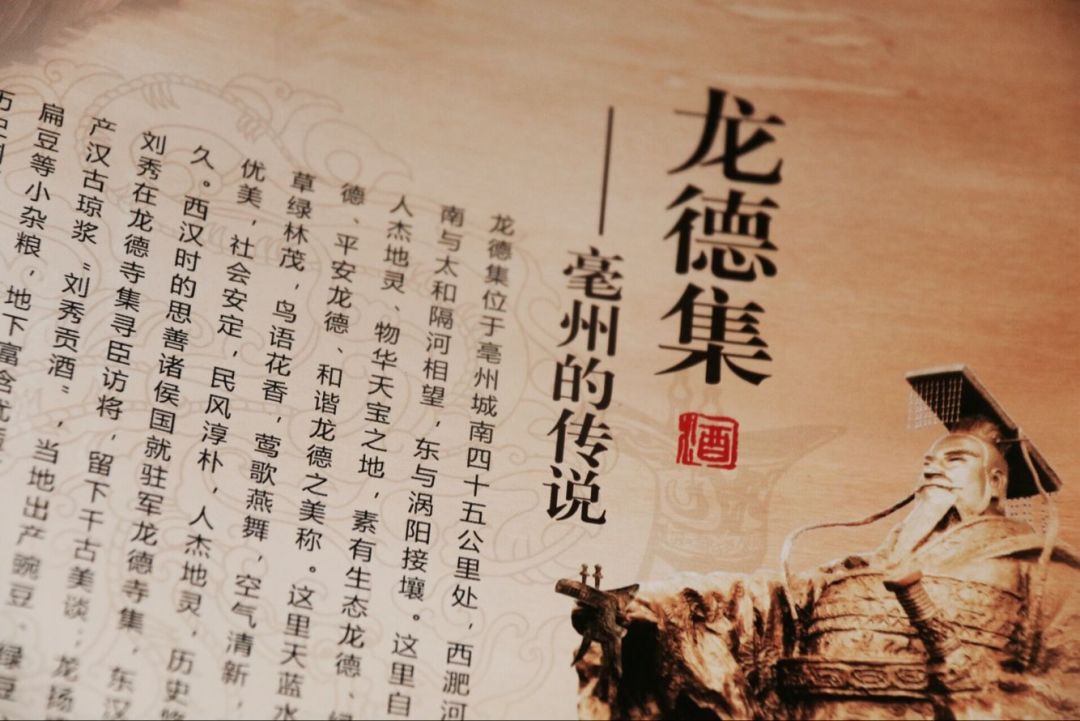 龙德集
酒
——亳州的传说
龙德集位于亳州城南四十五公里处，西淝河
南与太和隔河相望，东与涡阳接壤。这里自
人杰地灵、物华天宝之地，素有生态龙德、
德、平安龙德、和谐龙德之美称。这里天蓝水
草绿林茂，鸟语花香，莺歌燕舞，空气清新，
优美，社会安定，民风淳朴，人杰地灵，历史
久。西汉时的思善诸侯国就驻军龙德寺集，东汉
刘秀在龙德寺集寻臣访将，留下千古美谈；龙扬
产汉古琼浆“刘秀贡酒”，当地出产豌豆、绿豆
扁豆等小杂粮，地下富含优